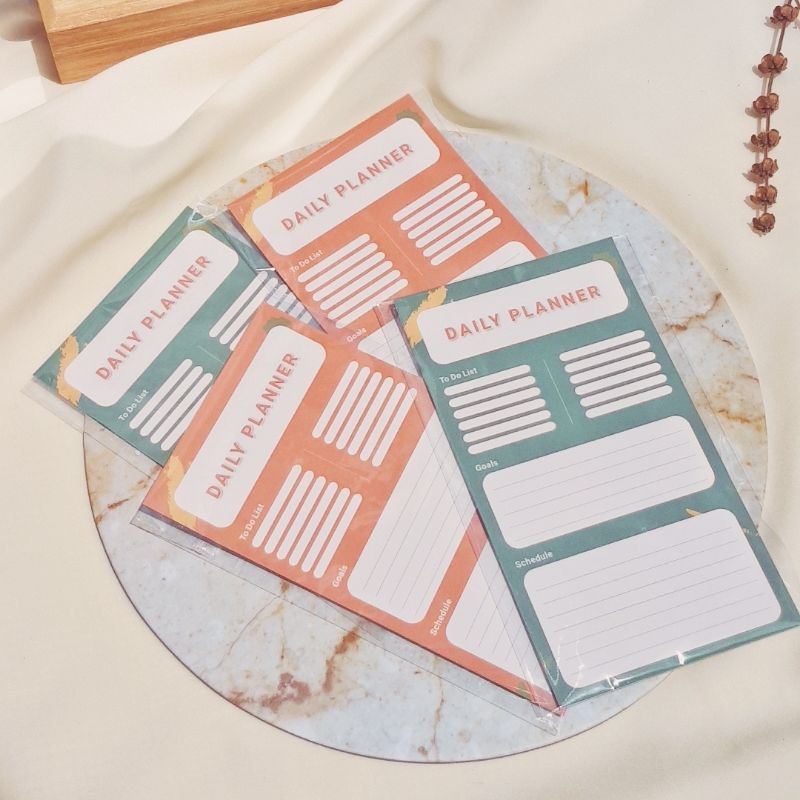 DAILY PLANNER
To Do List
Goals
DAILY PLANNER
To Do List
DAILY PLANNER
To Do List
Goals
Schedule
DAILY PLANNER
To Do List
Goals
Schedule